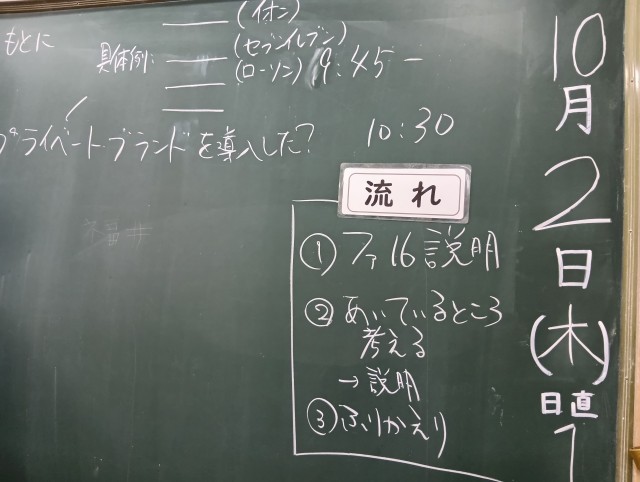 もとに
具体例:
(イオン)
(セブンイレブン)
(ローソン) 9:45ー
プライベートブランドを導入した?
10:30
流れ
① ファ16 説明
② あいているところ
考える
→説明
③ ふりかえり
10月2日(木)
日直
1